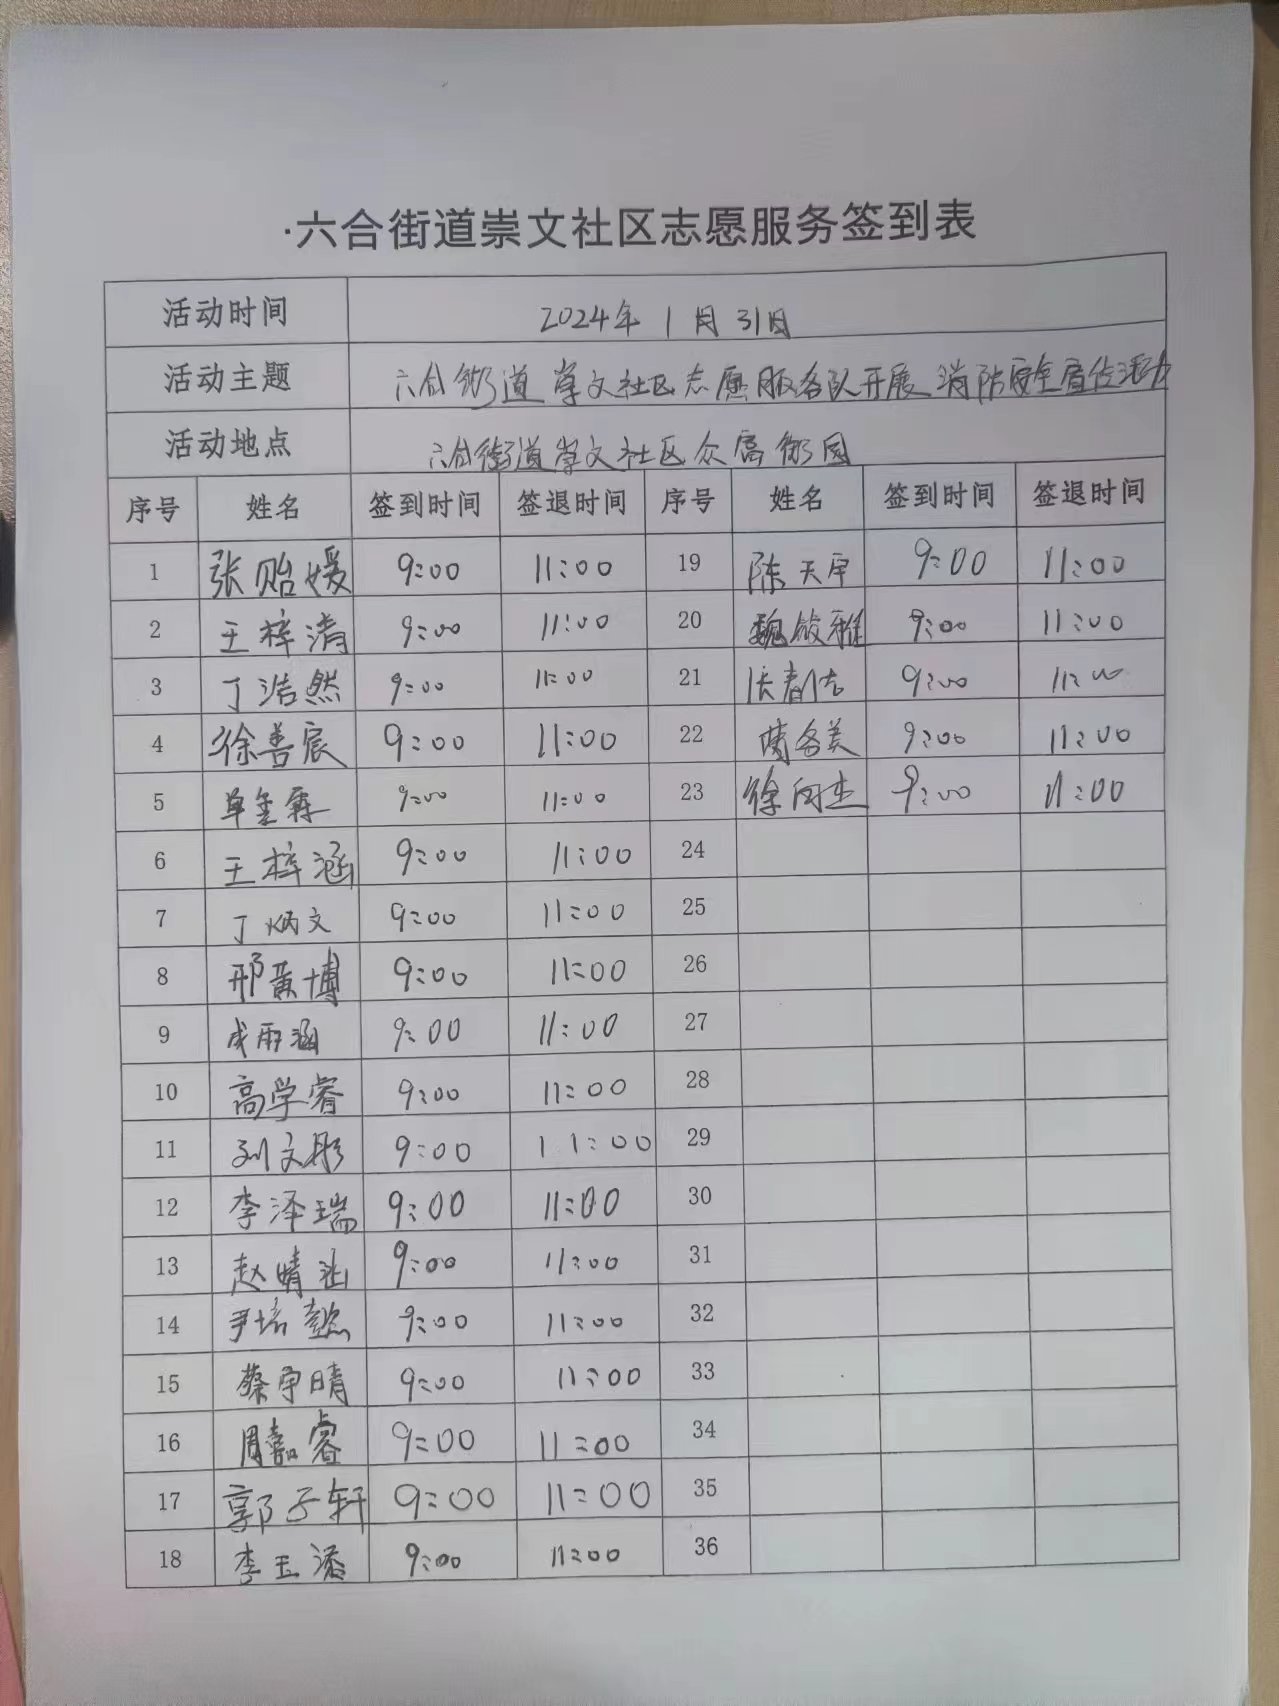 ·六合街道崇文社区志愿服务签到表
活动时间 2024年1月31日
活动主题 六合街道崇文社区志愿服务队开展消防安全宣传活动
活动地点 六合街道崇文社区众高街园
序号 姓名 签到时间 签退时间 序号 姓名 签到时间 签退时间
1 张贻媛 9:00 11:00 19 陈天宇 9:00 11:00
2 王梓清 9:00 11:00 20 魏筱雅 9:00 11:00
3 丁浩然 9:00 11:00 21 9:00 11:00
4 徐善宸 9:00 11:00 22 9:00 11:00
5 单奎霖 9:00 11:00 23 徐向杰 9:00 11:00
6 王梓涵 9:00 11:00 24
7 丁炳文 9:00 11:00 25
8 邢黄博 9:00 11:00 26
9 成雨涵 9:00 11:00 27
10 高学睿 9:00 11:00 28
11 刘文彤 9:00 11:00 29
12 李泽瑞 9:00 11:00 30
13 赵婧涵 9:00 11:00 31
14 尹培懿 9:00 11:00 32
15 蔡宇晴 9:00 11:00 33
16 周嘉睿 9:00 11:00 34
17 郭子轩 9:00 11:00 35
18 李玉潘 9:00 11:00 36